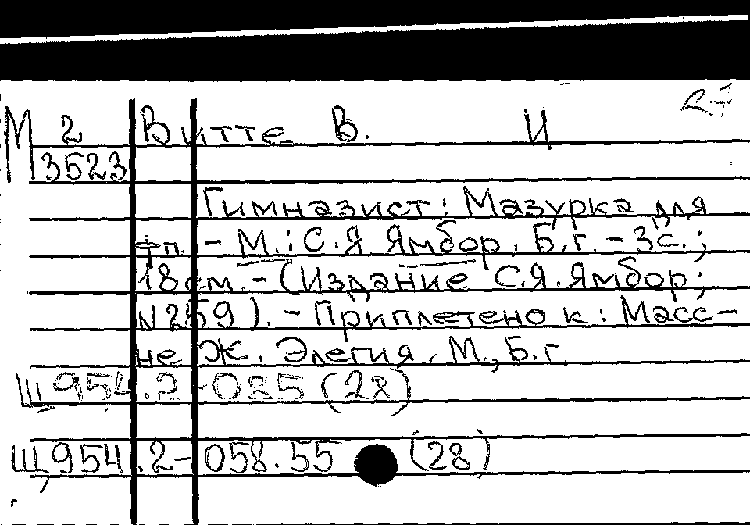 М 2 Витте В. И
3523
Гимназист: Мазурка для
фп. - М.: С.Я. Ямбор, Б.г. - 3с.;
18 см. - (Издание С.Я. Ямбор;
N 259). - Приплетено к: Масс-
не Ж. Элегия. М., Б.г.
Щ 954.2-085 (28)
Щ 954.2-058.55 (28)